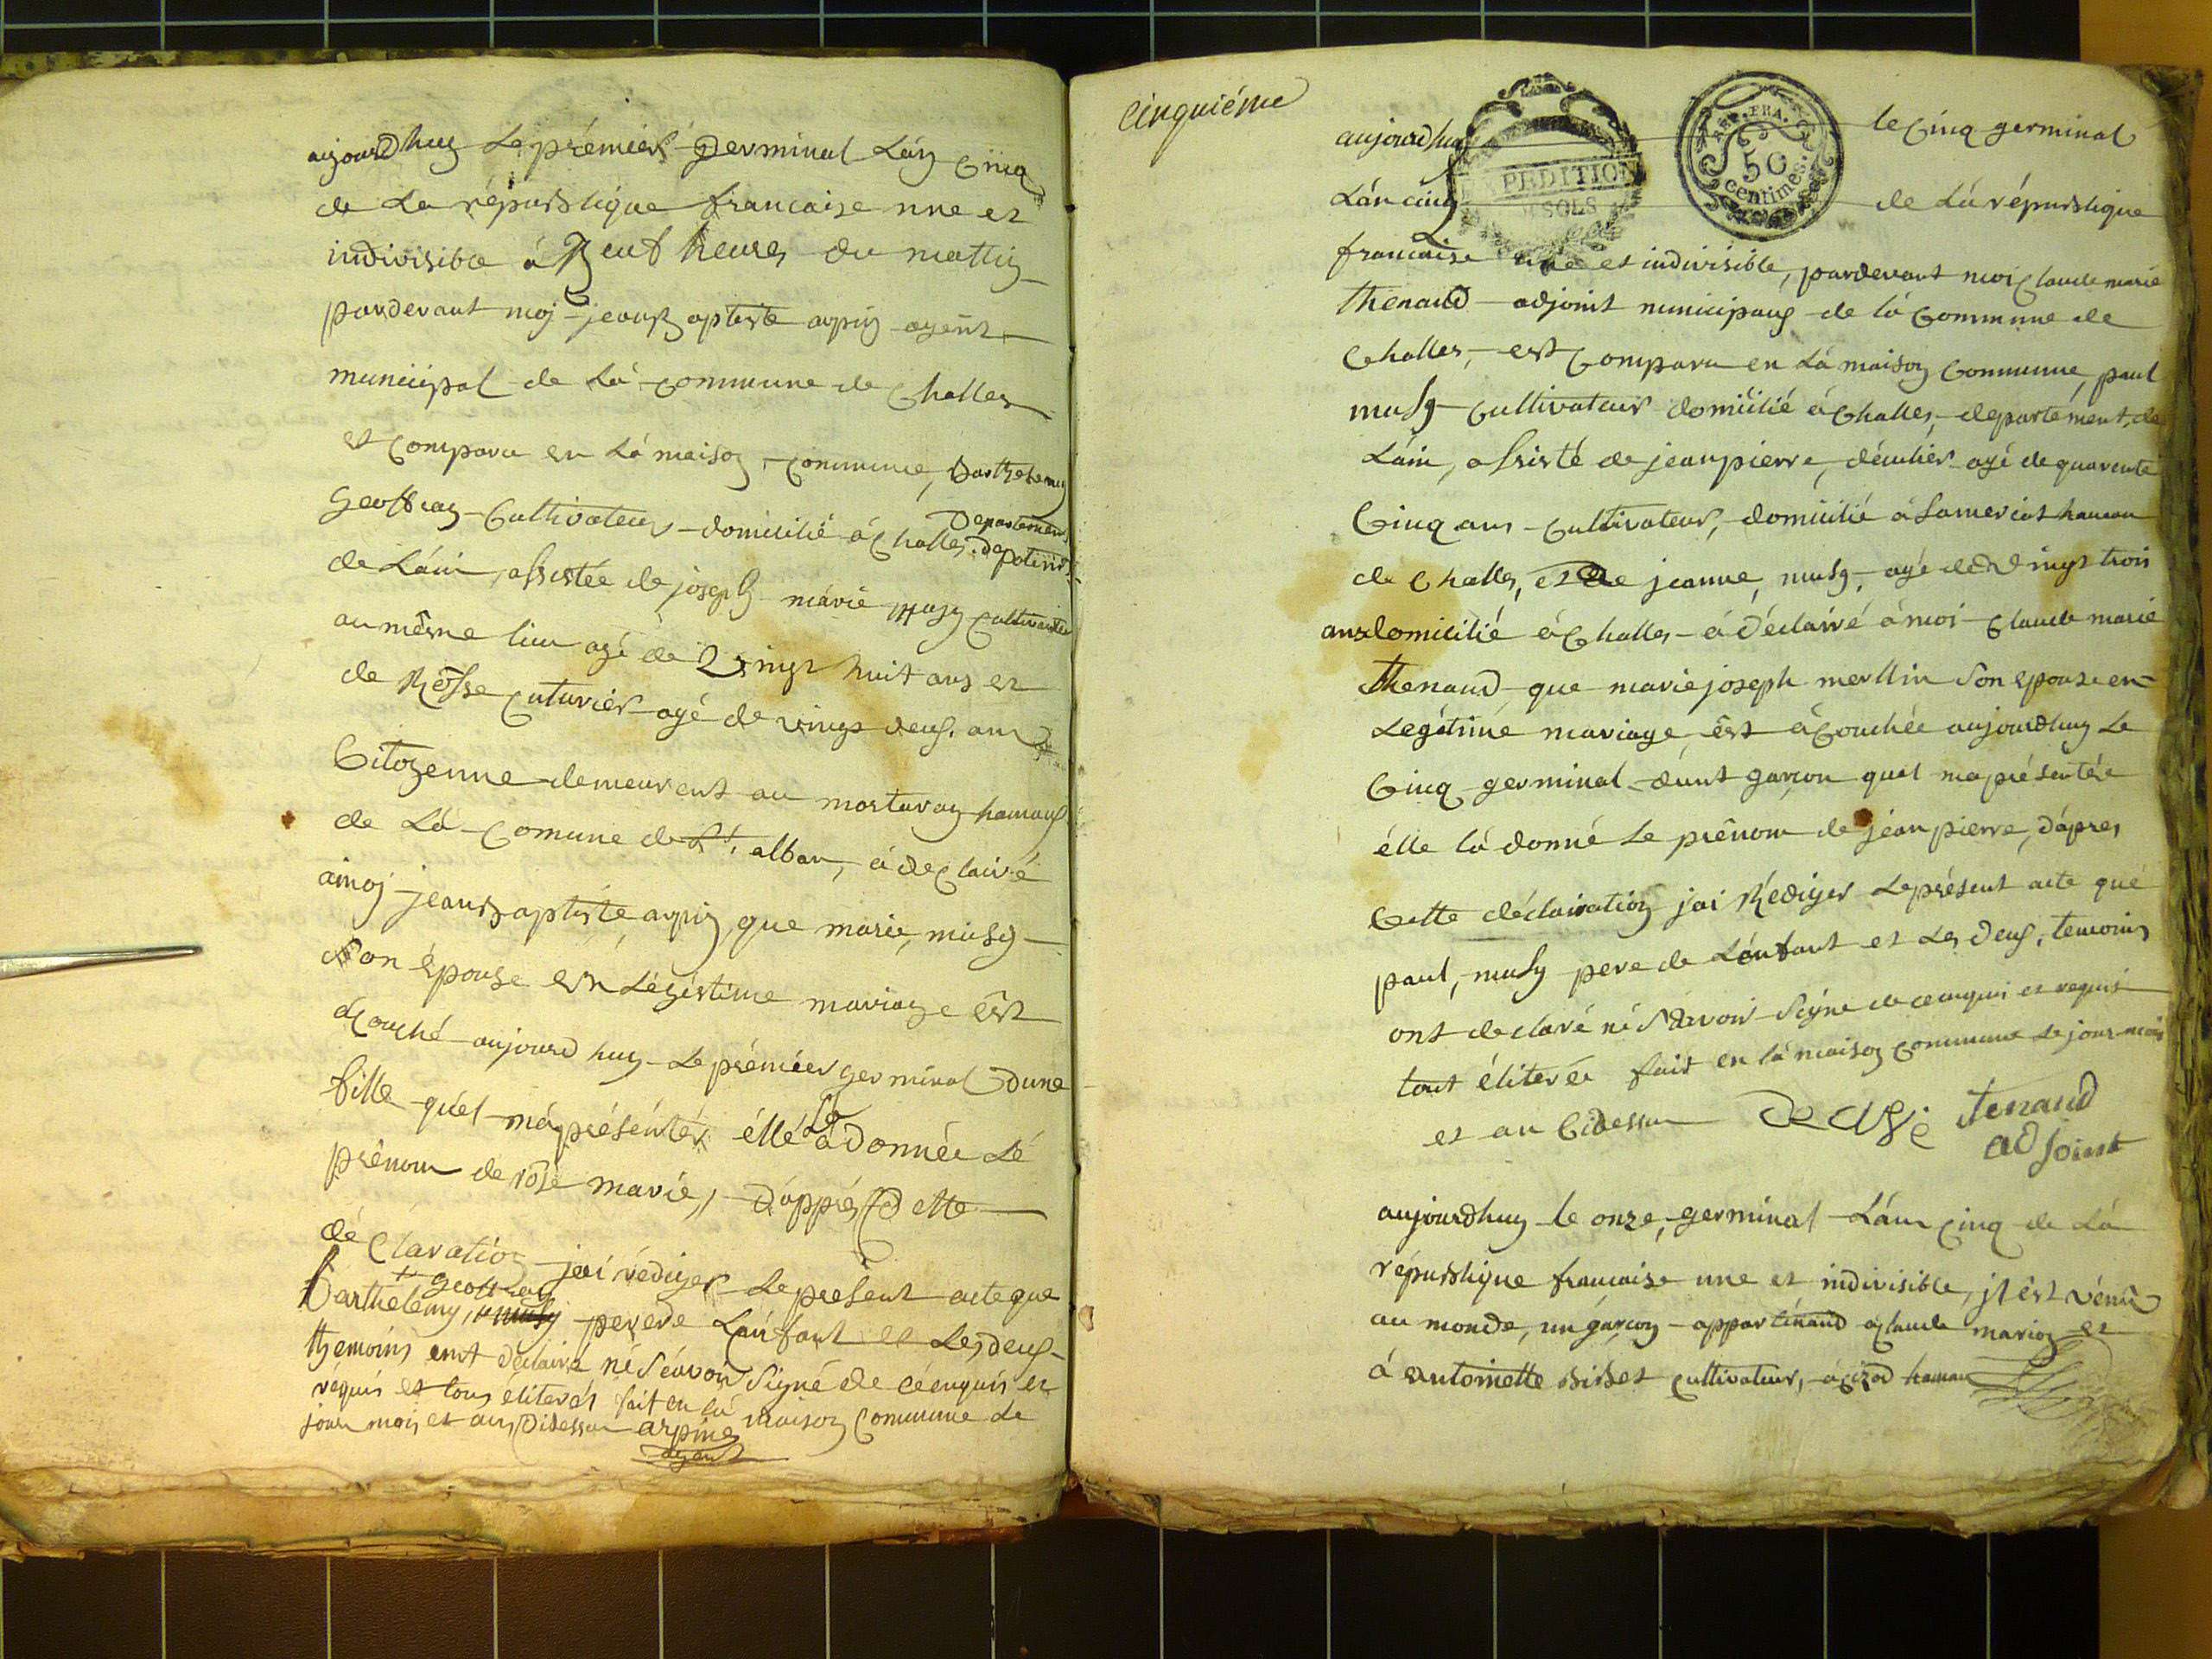 aujourdhuy Le prémiér germinal Lán Cinq
de La répubsligue francaise une et
indivisible á neuf heures du mattin
pardevant moj jeanbaptiste arpin agent
municipal de Lá commune de Challes
et comparu en Lá maison commune, barthelemy
Geoffray Cultivateur domicilié á Challes Departement
de Láin, assistée de joseph márie musy Cultivateur
au mesme lieu agé de Vingt huit ans et
de Rosse Cuturiér agé de vingt deux ans
Citoyenne demeurent au mortaray hamaux
de Lá Comune de St. alban, á declairé
amoj jeanbaptiste arpin que marie, musy
son épouse en Légistime mariage ést
acouché aujourd huy Le prémiér germinal dune
fille quel má présénter éllé Lá donnée Lé
prénom de rose marie, dápprés Cette
déClaration jai rédiger Le present acte que
geoffray
barthelemy, musy pere de Lánfant et Les deux
themoins ont déclairé né séavoir Signé de céenquis et
réquis et tous élitérés fait en lá maison Commune Le
jour mois et an Cidessu arpin
agent
Cinquiéme
aujourdhuy le Cinq germinal
Lán cinq de Lá répubsligue
EXPEDITION
SOLS
REP. FRA.
50
centimes.
francaise une et indivisible, pardevant moi Claude marie
thenaud adjoint municipaux de lá Commune de
Challes, est Comparu en Lá maison Commune, paul
musy Cultivateur domicilié á Challes, departement, de
Láin, assisté de jeanpierre, déculiér agé de quarente
Cinq ans Cultivateur, domicilié á hamau
de Challes, et de jeanne, musy, agé de vingt trois
ans domicilié á Challes á déclairé á moi Claude marie
thenaud que marie joseph merllin Son epouse en
Legitimé mariage ést ácouchée aujourdhuy Le
Cinq germinal dunt garçon quel ma présentée
élle lá donné Le prénom de jéan pierre, dápres
Cette déclairation jai Rédiger Le présent acte qué
paul, musy pere de Lénfant et Les deux, temoins
ont declaré né Savoir Signe de cenquis et requis
tout éliterée fait en lá maison Commune Le jour mois
et an Cidessu tenaud
adjoint
aujourdhuy le onze, germinal Lán Cinq de Lá
répubsligue francaise une et indivisible, jl ést vénû
au monde, un garçon appartenand á Claude marion et
á antoinette bibet Cultivateur, á hamau